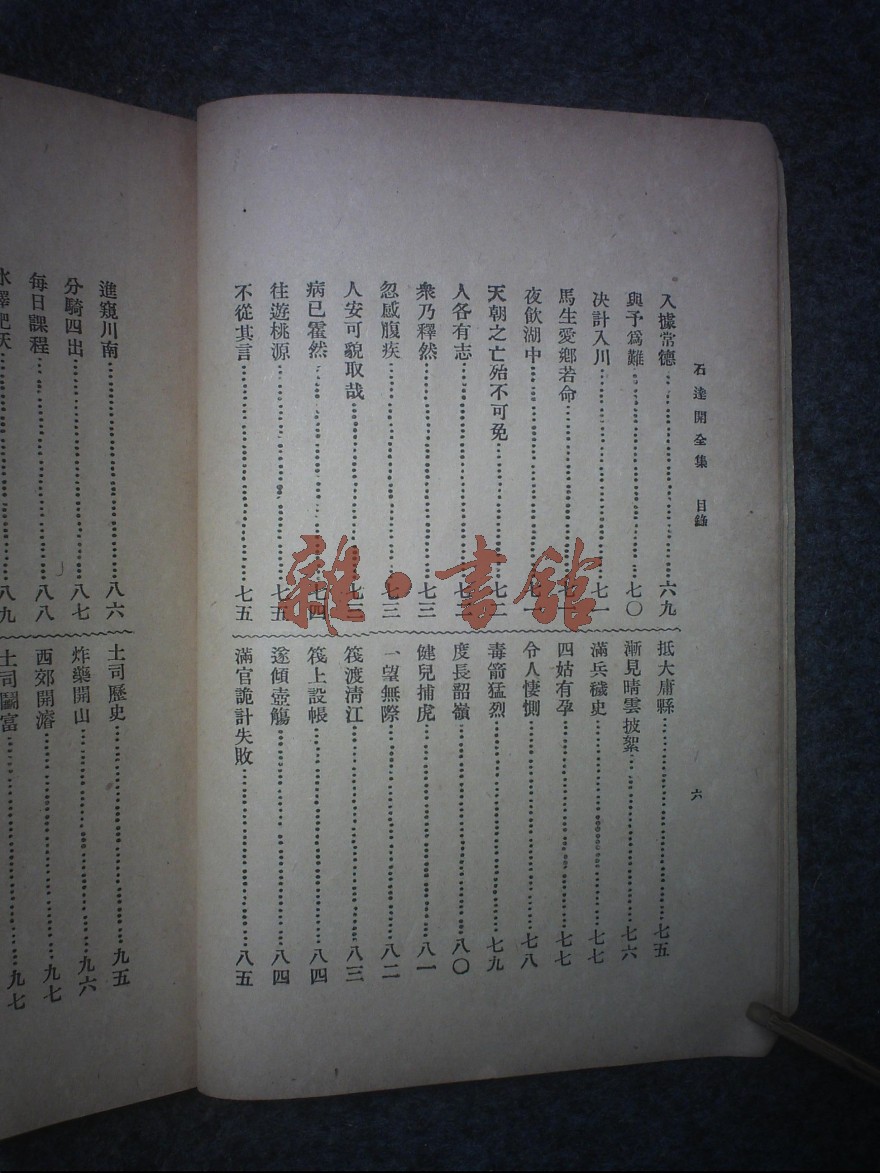 石達開全集 目錄
六
入據常德……六九
與予爲難……七〇
决計入川……七一
馬生愛鄉若命……七一
夜飲湖中……七
天朝之亡殆不可免……七二
人各有志……七
衆乃釋然……七三
忽感腹疾……七三
人安可貌取哉……七
病已霍然……七四
往遊桃源……七五
不從其言……七五
抵大庸縣……七五
漸見晴雲披絮……七六
滿兵穢史……七七
四姑有孕……七七
令人悽惻……七八
毒箭猛烈……七九
度長韶嶺……八〇
健兒捕虎……八一
一望無際……八二
筏渡淸江……八三
筏上設帳……八四
遂傾壺觴……八四
滿官詭計失敗……八五
進窺川南……八六
分騎四出……八七
每日課程……八八
水澤肥沃……八九
土司歷史……九五
炸藥開山……九六
西郊開濬……九七
土司鬭富……九七
雜·書館